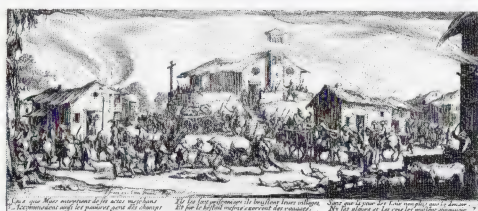 Ceux que Mars entretient de ses actes meschans
Accommodent ainsi les pauures gens des champs
Ils les font prisonniers ils bruslent leurs villages
Et sur le bestail mesme exercent des rauages,
Sans que la peur des Loix non plus que le deuoir
Ny les pleurs et les cris les puissent